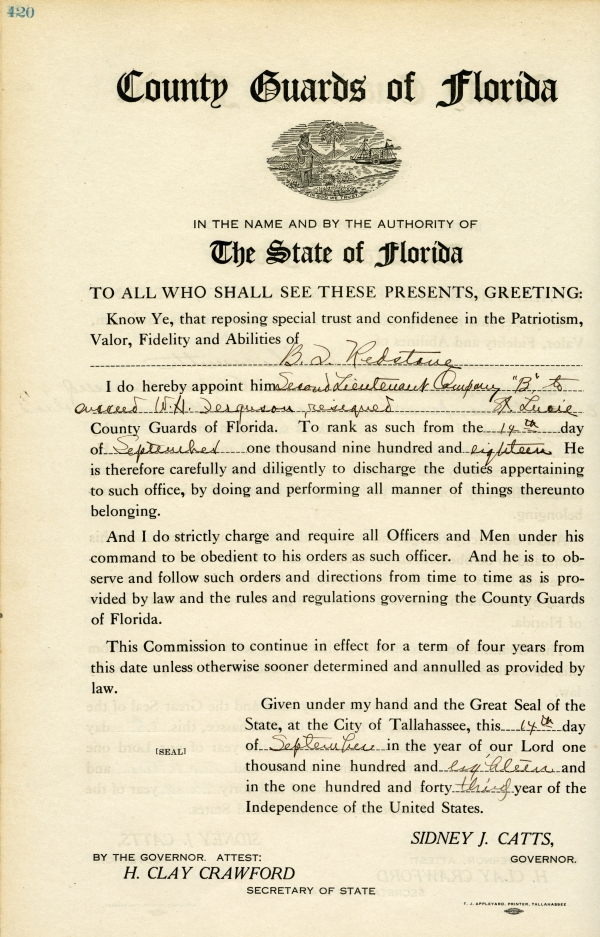 420
County Guards of Florida
IN GOD WE TRUST
IN THE NAME AND BY THE AUTHORITY OF
The State of Florida
TO ALL WHO SHALL SEE THESE PRESENTS, GREETING:
Know Ye, that reposing special trust and confidenee in the Patriotism,
Valor, Fidelity and Abilities of
B. I. Redstone
I do hereby appoint him Second Lieutenant Company "B" to
succeed W. H. Ferguson, resigned St Lucie
County Guards of Florida. To rank as such from the 14th day
of September one thousand nine hundred and eighteen He
is therefore carefully and diligently to discharge the duties appertaining
to such office, by doing and performing all manner of things thereunto
belonging.
And I do strictly charge and require all Officers and Men under his
command to be obedient to his orders as such officer. And he is to ob-
serve and follow such orders and directions from time to time as is pro-
vided by law and the rules and regulations governing the County Guards
of Florida.
This Commission to continue in effect for a term of four years from
this date unless otherwise sooner determined and annulled as provided by
law.
Given under my hand and the Great Seal of the
State, at the City of Tallahassee, this 14th day
[SEAL] of September in the year of our Lord one
thousand nine hundred and eighteen and
in the one hundred and forty third year of the
Independence of the United States.
SIDNEY J. CATTS,
BY THE GOVERNOR. ATTEST: GOVERNOR.
H. CLAY CRAWFORD
SECRETARY OF STATE
T. J. APPLEYARD, PRINTER, TALLAHASSEE